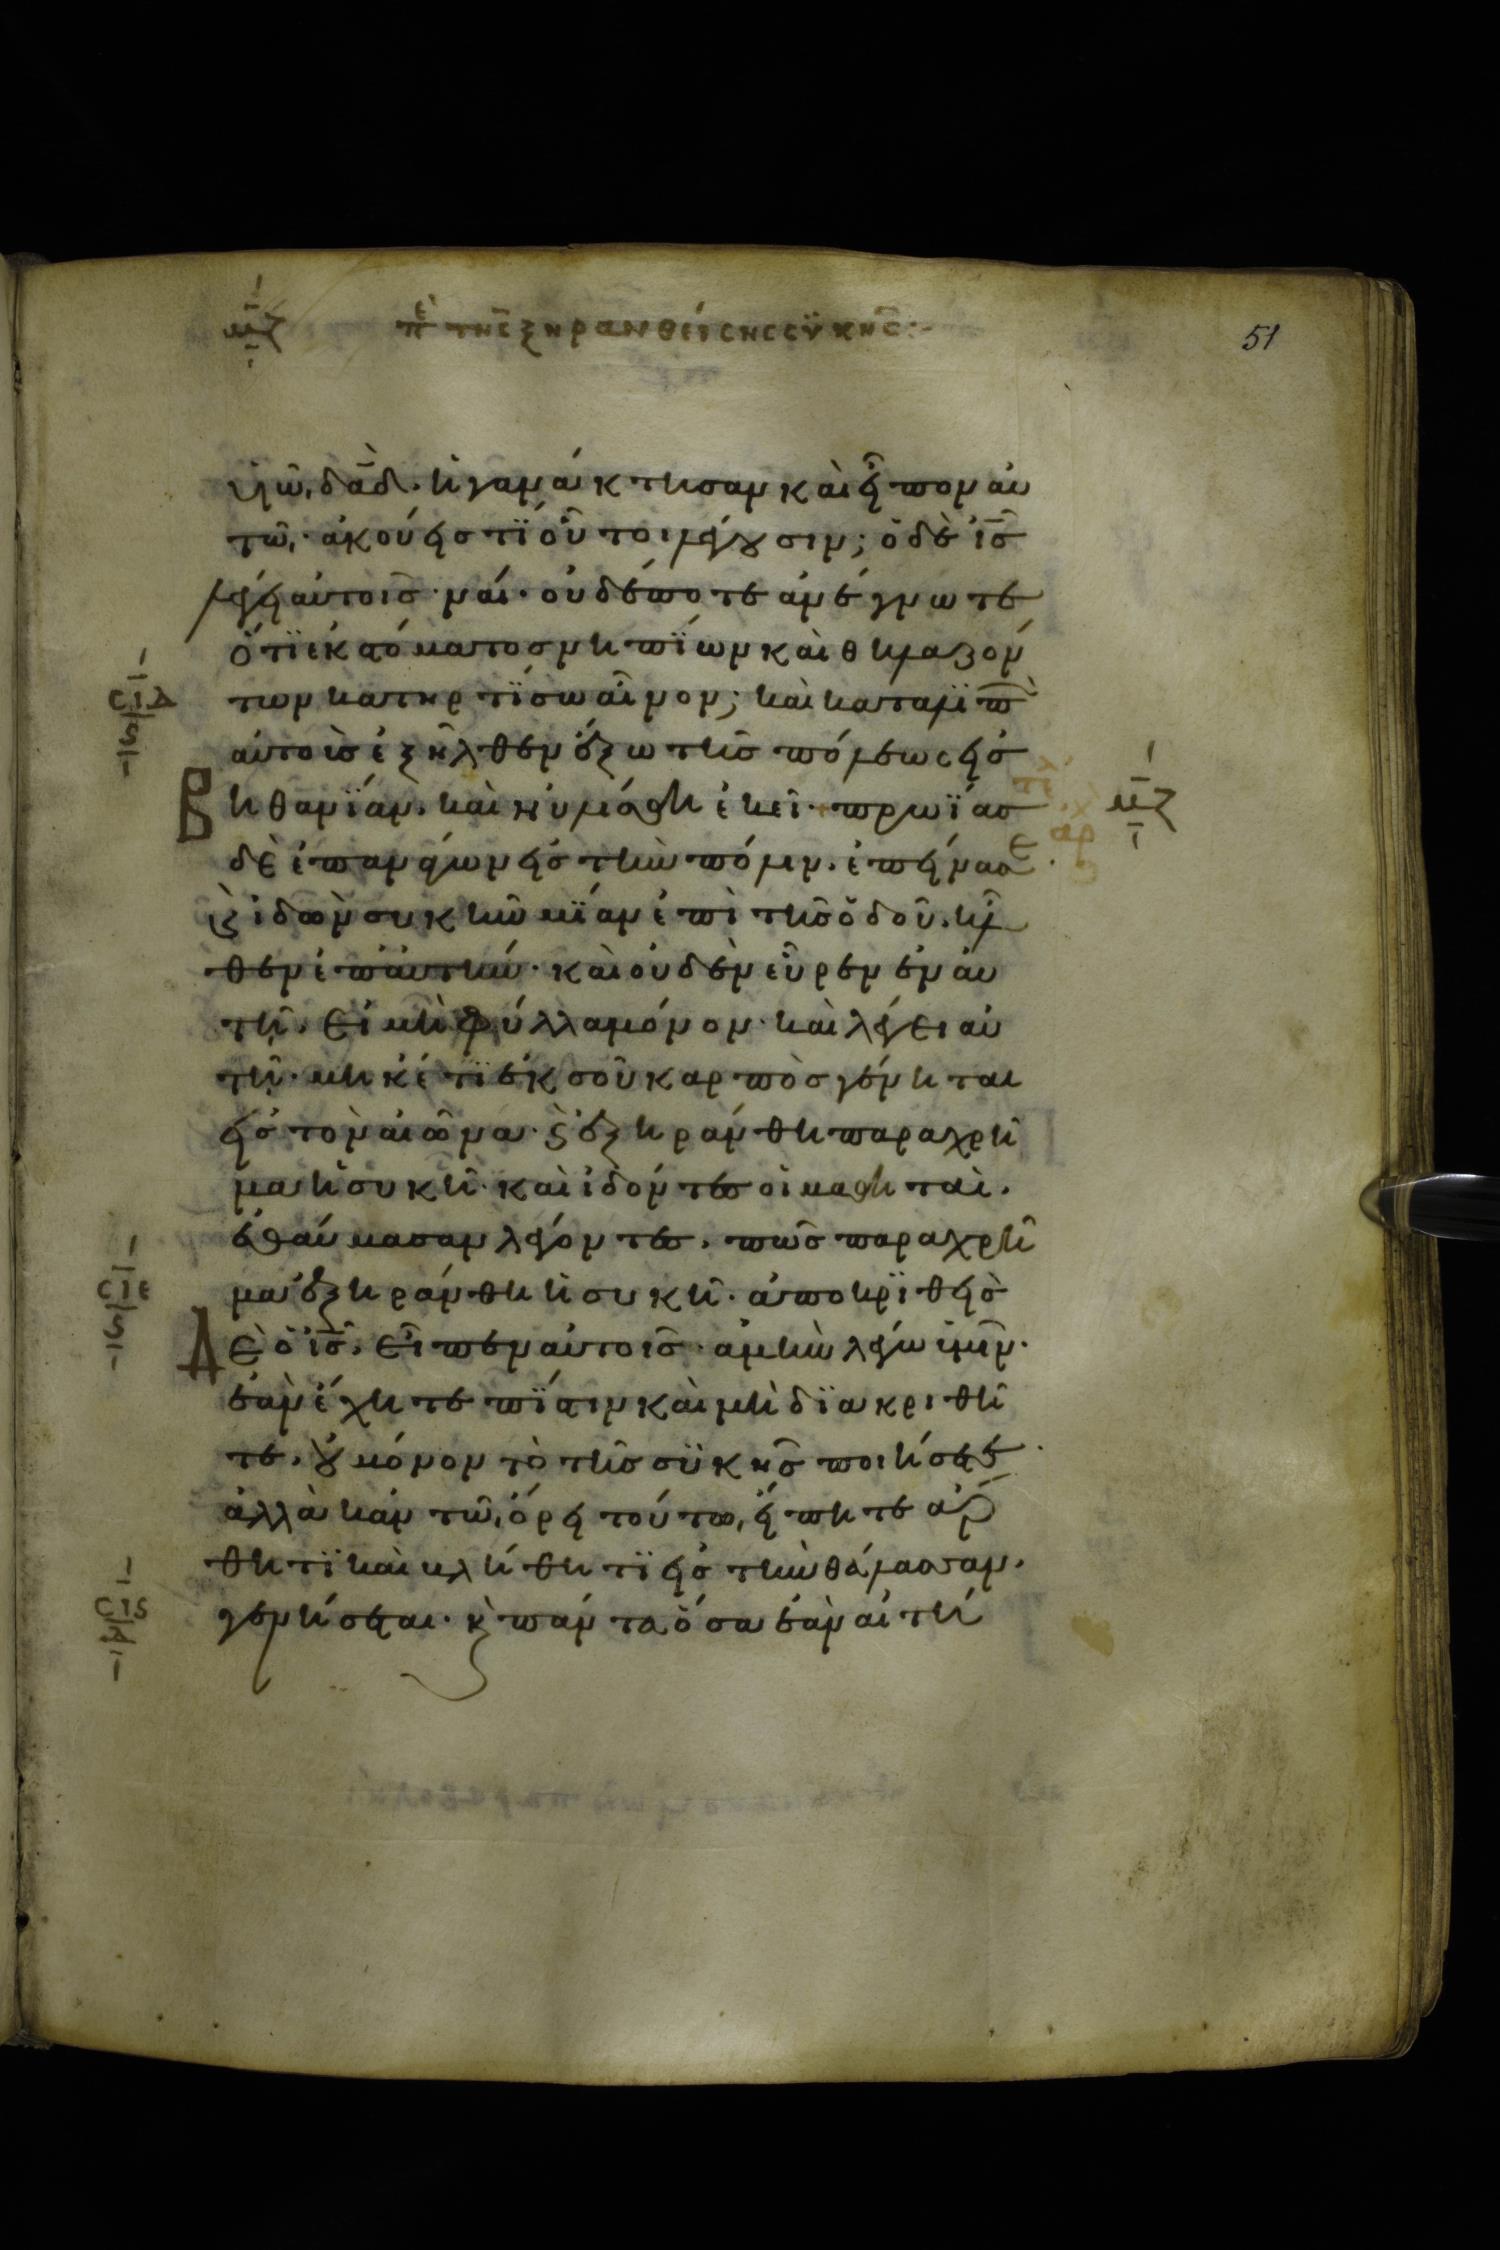 μζ πε της ξηρανθείσης συκης:
51
υἱῶ δαδ. ἠγανάκτησαν καὶ εἶπον αὐ
τῶ· ἀκούεις τί οὗτοι λέγουσιν; ὁ δὲ ἰς
λέγει αὐτοῖς· ναί· οὐδέποτε ἀνέγνωτε
ὅτι ἐκ στόματος νηπίων καὶ θηλαζόν
σιδ
των κατηρτίσω αἶνον; καὶ καταλιπὼ
ς
αὐτοὺς ἐξῆλθεν ἔξω τῆς πόλεως εἰς
Βηθανίαν. καὶ ηὐλίσθη ἐκεῖ· πρωΐας
μζ
δὲ ἐπανάγων εἰς τὴν πόλιν. ἐπείνασε
ϗ ἰδὼν συκῆν μίαν ἐπὶ τῆς ὁδοῦ. ἦλ
θεν ἐπ' αὐτήν· καὶ οὐδὲν εὗρεν ἐν αὐ
τῇ. εἰ μὴ φύλλα μόνον· καὶ λέγει αὐ
τῇ· μηκέτι ἐκ σοῦ καρπὸς γένηται
εἰς τὸν αἰῶνα· ϗ ἐξηράνθη παραχρῆ
μα ἡ συκῆ· καὶ ἰδόντες οἱ μαθηταὶ.
ἐθαύμασαν λέγοντες. πῶς παραχρῆ
σιε
μα ἐξηράνθη ἡ συκῆ· ἀποκριθεὶς
ς
Δὲ ὁ ἰς. εἶπεν αὐτοῖς· ἀμὴν λέγω ὑμῖν·
ἐὰν ἔχητε πίστιν καὶ μὴ διακριθῆ
τε. οὐ μόνον τὸ τῆς συκῆς ποιήσετε·
ἀλλὰ κἂν τῶ ὄρει τούτω εἴπητε ἄρ
θητι καὶ κλήθητι εἰς τὴν θάλασσαν.
σις
γενήσεται· ϗ πάντα ὅσα ἐὰν αἰτή